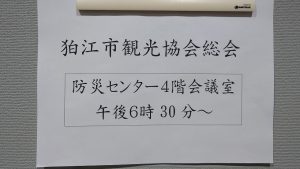 狛江市観光協会総会
防災センター4階会議室
午後6時30分～